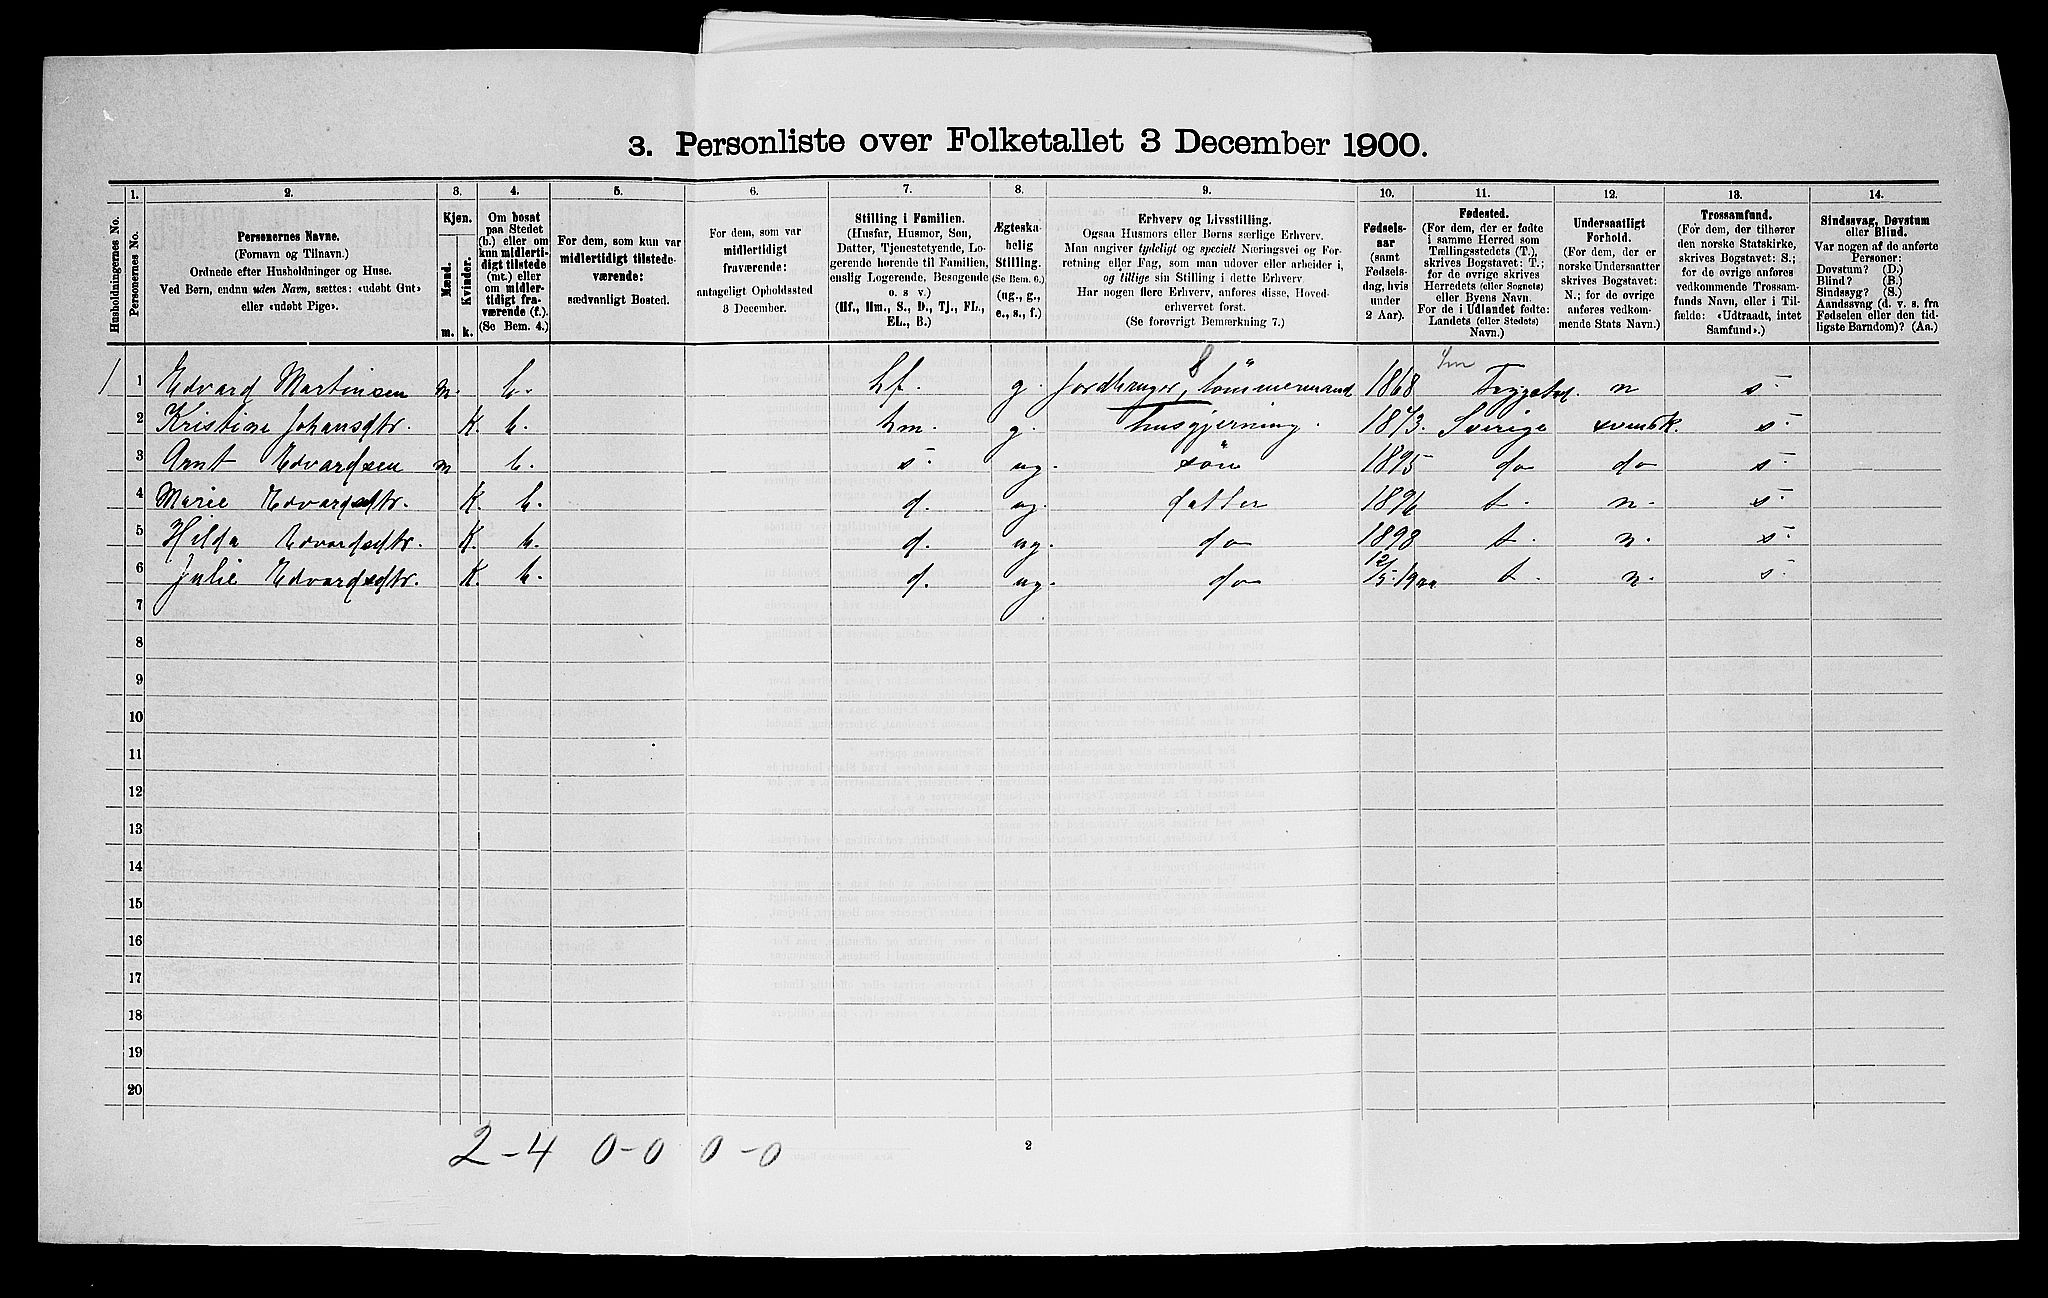 3. Personliste over Folketallet 3 December 1900.
Husholdningernes No.
1.
Personernes No.
2.
Personernes Navne.
(Fornavn og Tilnavn.)
Ordnede efter Husholdninger og Huse.
Ved Børn, endnu uden Navn, sættes: «udøbt Gut»
eller «udøbt Pige».
3.
Kjøn.
Mænd.
Kvinder.
m.
k.
4.
Om bosat
paa Stedet
(b.) eller om
kun midlerti-
digt tilstede
(mt.) eller
om midler-
tidigt fra-
værende (f.).
(Se Bem. 4.)
5.
For dem, som kun var
midlertidigt tilstede-
værende:
sædvanligt Bosted.
6.
For dem, som var
midlertidigt
fraværende:
antageligt Opholdssted
3 December.
7.
Stilling i Familien.
(Husfar, Husmor, Søn,
Datter, Tjenestetyende, Lo-
gerende hørende til Familien,
enslig Logerende, Besøgende
o. s v.)
(Hf., Hm., S., D., Tj., FL.,
EL., B.)
8.
Ægteska-
belig
Stilling.
(Se Bem. 6.)
(ug., g.,
e., s., f.)
9.
Erhverv og Livsstilling.
Ogsaa Husmors eller Børns særlige Erhverv.
Man angiver tydeligt og specielt Næringsvei og For-
retning eller Fag, som man udover eller arbeider i,
og tillige sin Stilling i dette Erhverv.
Har nogen flere Erhverv, anføres disse, Hoved-
erhvervet først.
(Se forøvrigt Bemærkning 7.)
10.
Fødsels-
aar
(samt
Fødsels-
dag, hvis
under
2 Aar).
11.
Fødested.
(For dem, der er fødte
i samme Herred som
Tællingsstedets (T.),
skrives Bogstavet: T.;
for de øvrige skrives
Herredets (eller Sognets)
eller Byens Navn.
For de i Udlandet fødte:
Landets (eller Stedets)
Navn.)
12.
Undersaatligt
Forhold.
(For dem, der er
norske Undersaatter
skrives Bogstavet:
N.; for de øvrige
anføres vedkom-
mende Stats Navn.)
13.
Trossamfund.
(For dem, der tilhører
den norske Statskirke,
skrives Bogstavet: S.;
for de øvrige anføres
vedkommende Trossam-
funds Navn, eller i Til-
fælde: «Udtraadt, intet
Samfund».)
14.
Sindssvag, Døvstum
eller Blind.
Var nogen af de anførte
Personer:
Døvstum? (D.)
Blind? (B.)
Sindssyg? (S.)
Aandssvag (d. v. s. fra
Fødselen eller den tid-
ligste Barndom)? (Aa.)
1 1 Edvard Martinsen m. b. hf. g. Jordbruger, tömmermand 1868 Trygstad. n s.
2 Kristine Johansdtr. K. b. hm. g. husgjerning. 1873. Sverige svensk. s.
3 Arnt Edvardsen m b. s. ug. sön 1895 do do s.
4 Marie Edvardsdtr. K. b. d. ug. datter 1896 t. n. s.
5 Hilda Edvardsdtr. K. b. d. ug. do 1898 t. n. s.
6 Julie Edvardsdtr. K. b. d. ug. do 12/5 1900 t. n. s.
7
8
9
10
11
12
13
14
15
16
17
18
19
20
2-4 0-0 0-0
2